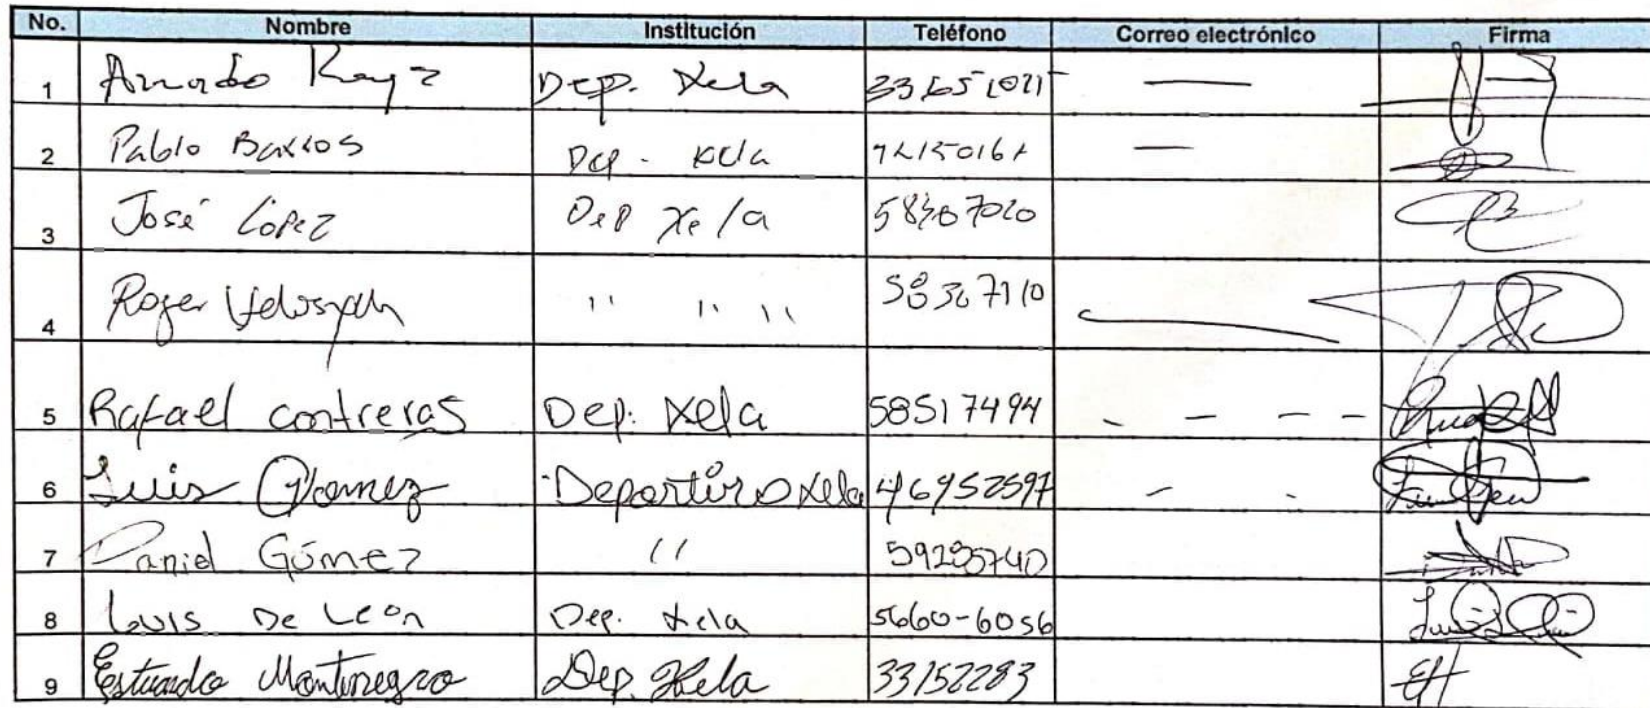 No. Nombre Institución Teléfono Correo electrónico Firma
1 Dep. Xela —
2 Pablo Barrios Dep. Xela —
3 José López Dep Xela 58307020
4 Roger '' '' '' 58367110 —
5 Rafael contreras Dep. Xela 58517494 - - - -
6 Luis Gomez Deportivo Xela 46952597 - -
7 Daniel Gómez ''
8 Luis De León Dep. Xela 5660-6056
9 Estuardo Montenegro Dep. Xela 33152283